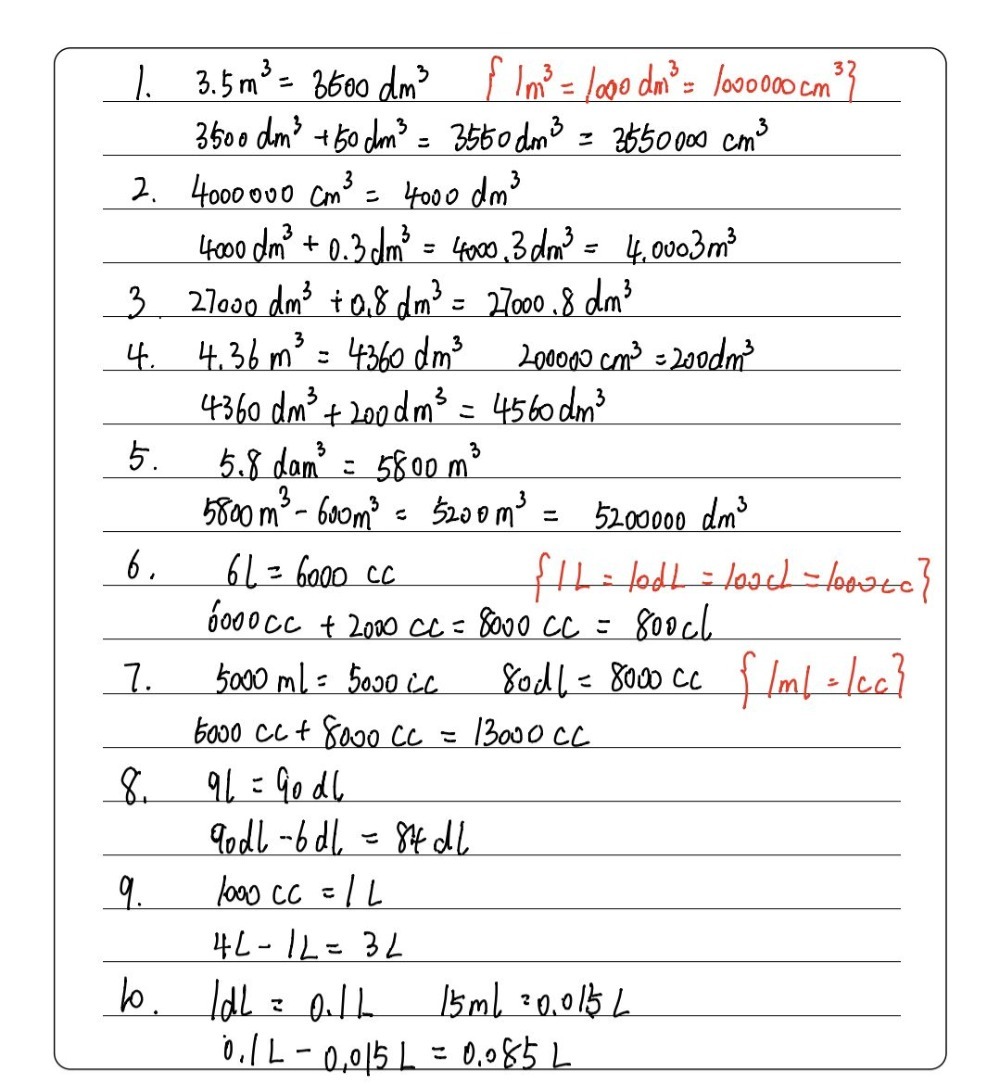 1. 3.5m³ = 3500 dm³ {1m³ = 1000 dm³ = 1000000cm³}
3500 dm³ + 50 dm³ = 3550 dm³ = 3550000 cm³
2. 4000000 cm³ = 4000 dm³
4000 dm³ + 0.3dm³ = 4000.3dm³ = 4.0003m³
3. 27000 dm³ + 0.8 dm³ = 27000.8 dm³
4. 4.36 m³ = 4360 dm³ 200000 cm³ = 200dm³
4360 dm³ + 200 dm³ = 4560 dm³
5. 5.8 dam³ = 5800 m³
5800 m³ - 600m³ = 5200m³ = 5200000 dm³
6. 6l = 6000 cc {1L = 10dL = 100cl = 1000cc}
6000cc + 2000 cc = 8000 cc = 800cl
7. 5000 ml = 5000 cc 80dl = 8000 cc {1ml = 1cc}
5000 cc + 8000 cc = 13000 cc
8. 9l = 90 dl
90dl - 6 dl = 84 dl
9. 1000 cc = 1 L
4L - 1L = 3L
10. 1dL = 0.1L 15ml = 0.015 L
0.1L - 0.015 L = 0.085 L